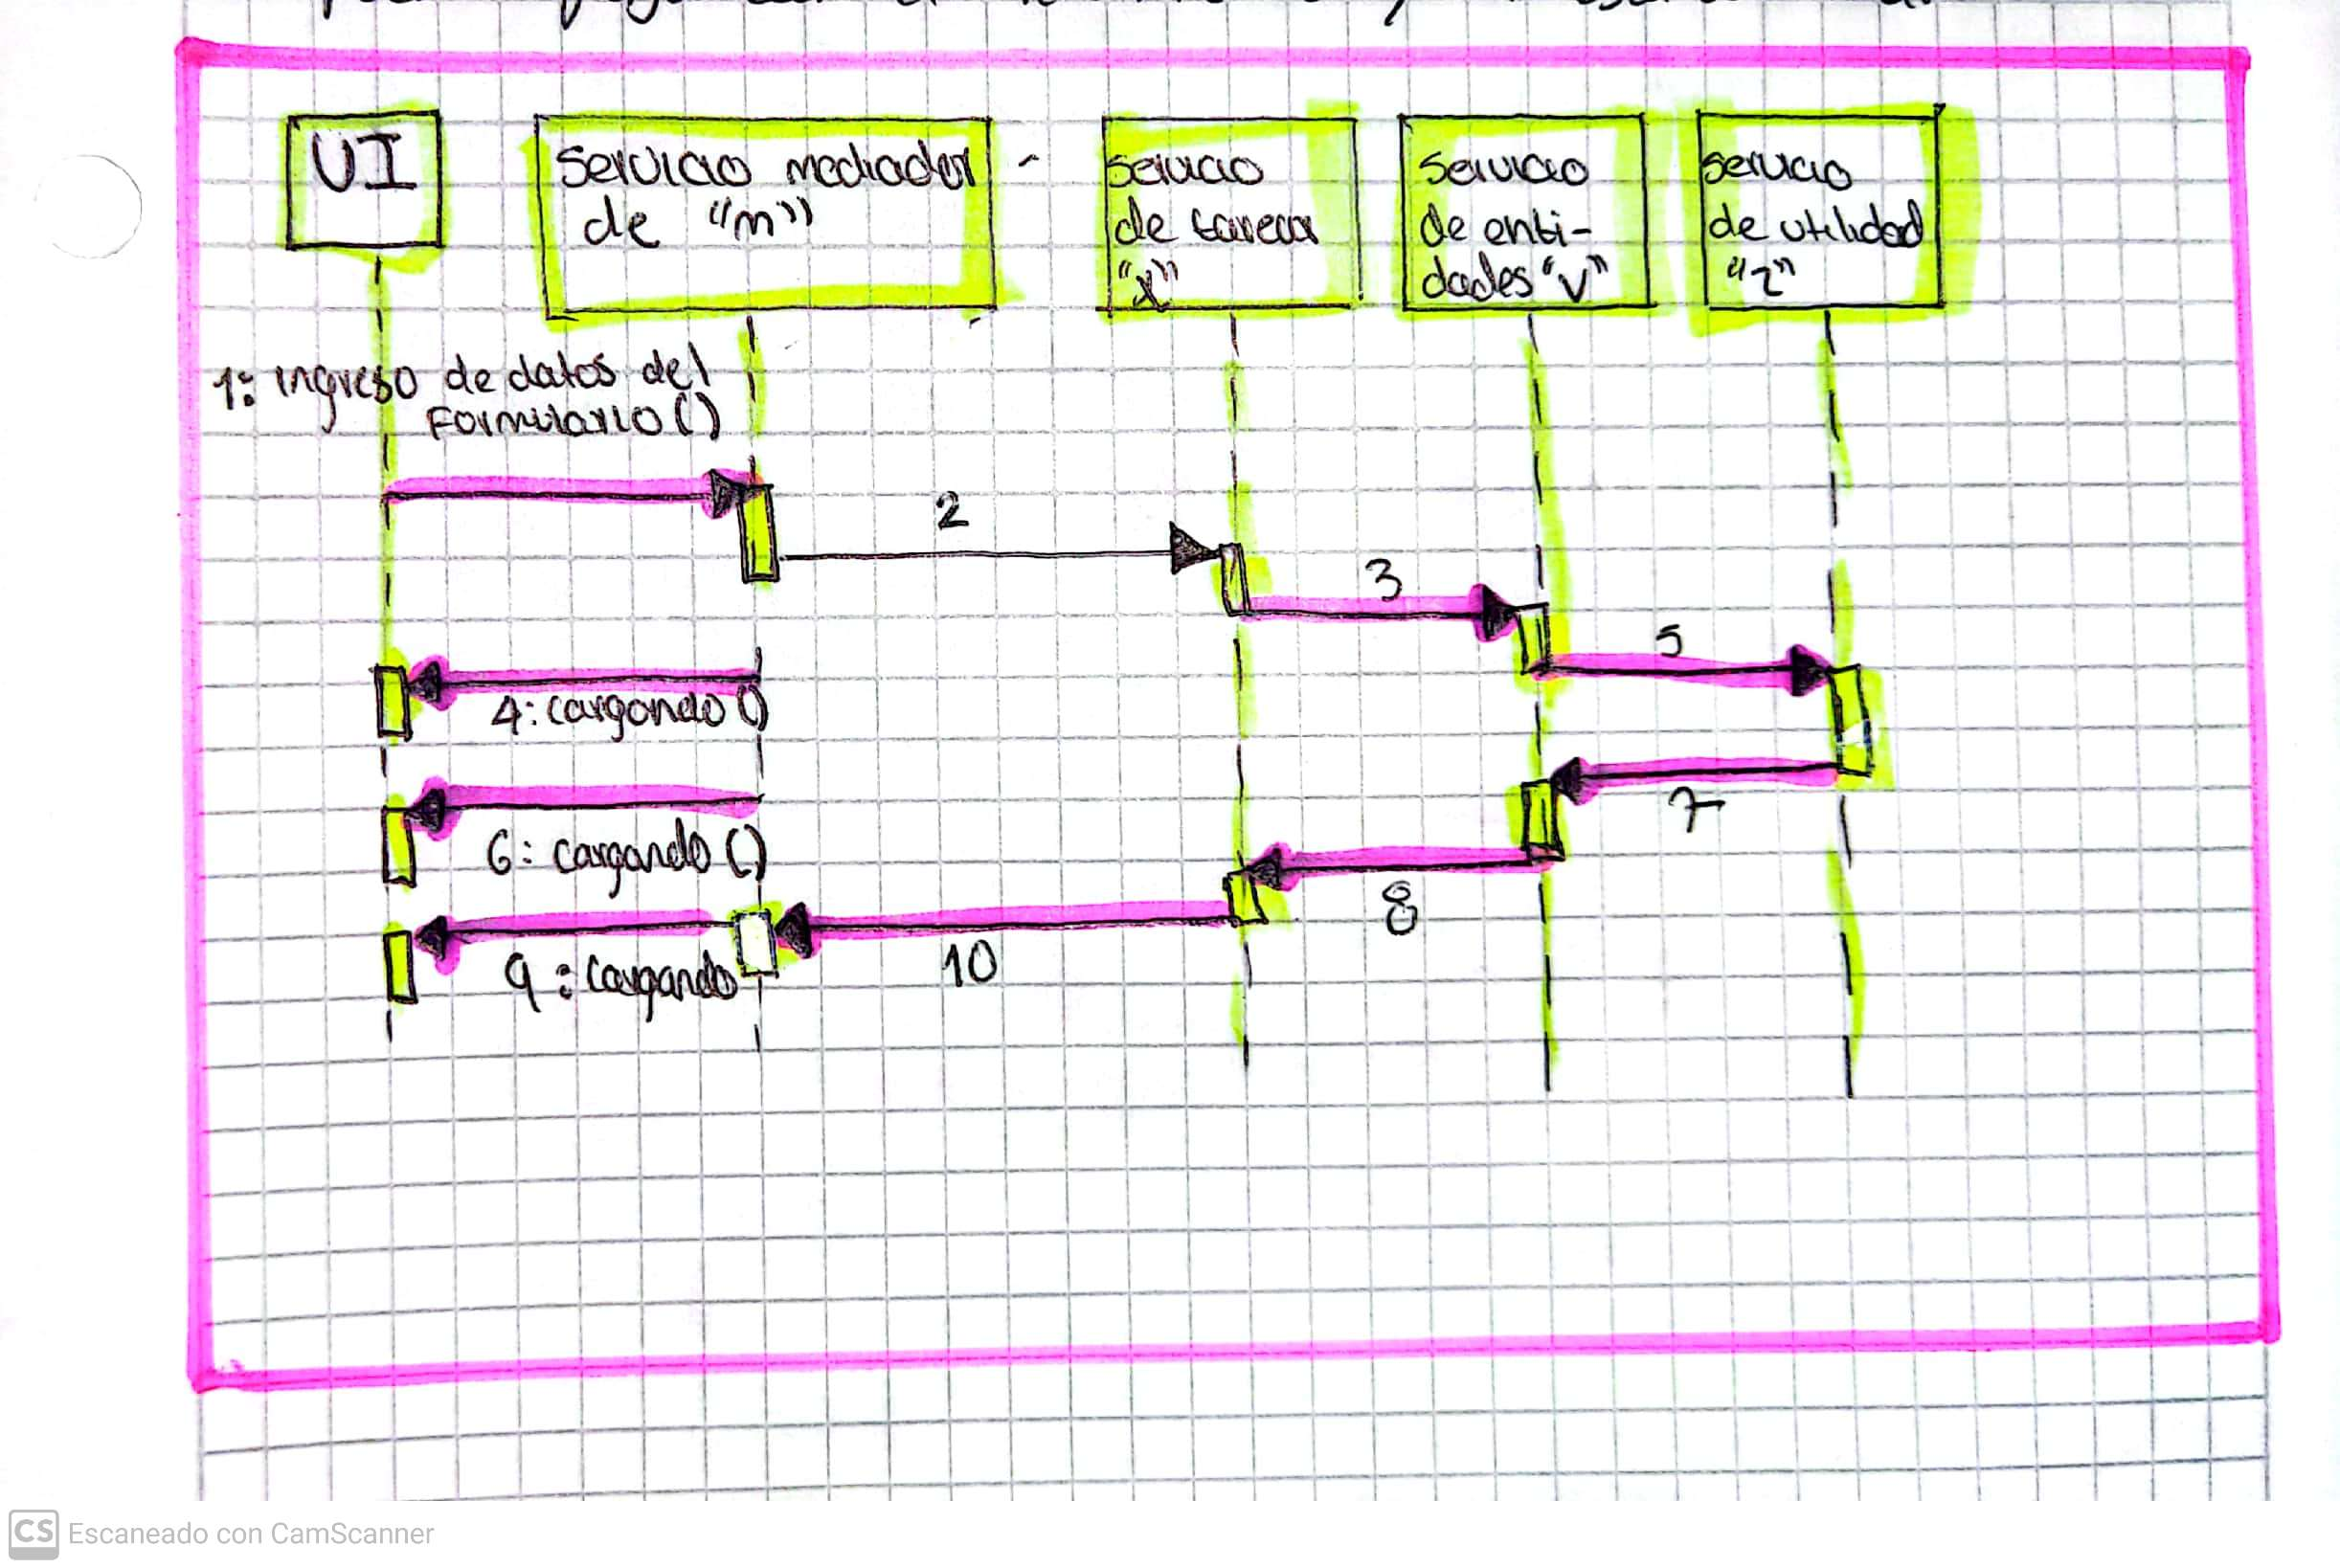 UI
Servicio mediador
de "m"
-
Servicio
de tareas
"x"
Servicio
de enti-
dades "v"
Servicio
de utilidad
"z"
1: ingreso de datos del
Formulario()
2
3
5
4: cargando()
7
6: cargando()
8
9: cargando
10
CS Escaneado con CamScanner